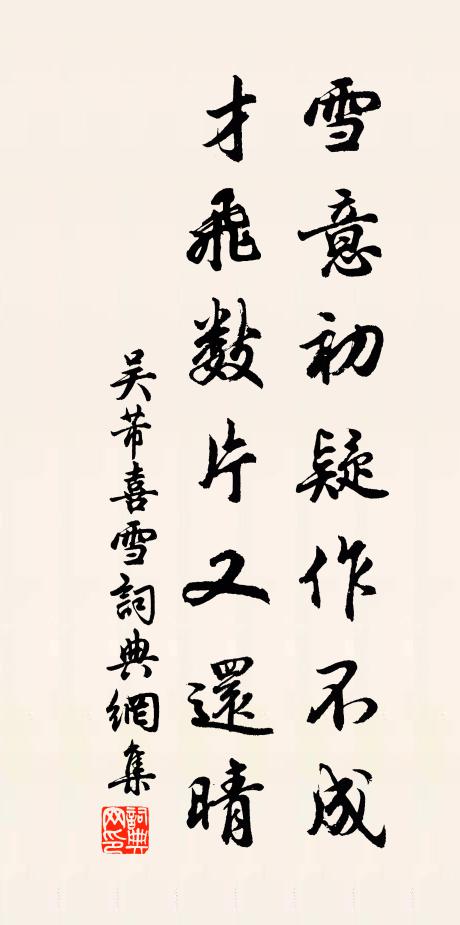 雪意初疑作不成
才飛數片又還晴
吳芾喜雪詞典網集
詞典網印